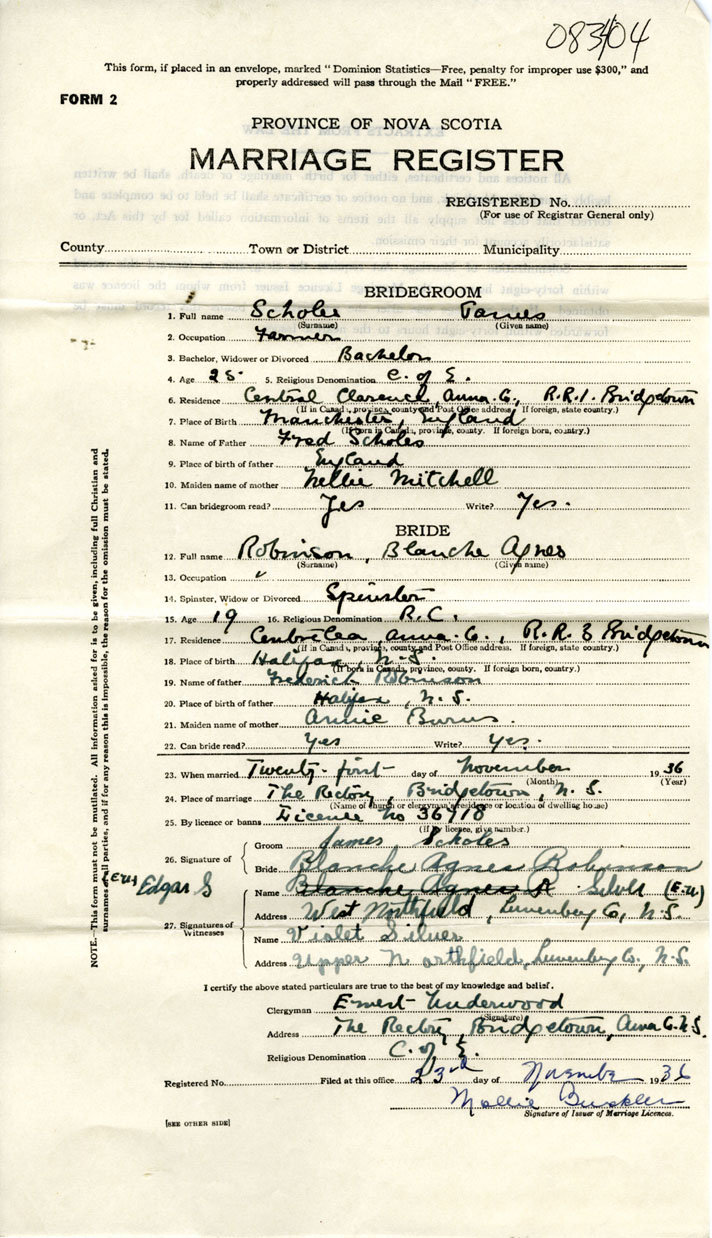 083404
This form, if placed in an envelope, marked "Dominion Statistics—Free, penalty for improper use $300," and
properly addressed will pass through the Mail "FREE."
FORM 2
PROVINCE OF NOVA SCOTIA
MARRIAGE REGISTER
REGISTERED No.
(For use of Registrar General only)
County Town or District Municipality
BRIDEGROOM
1. Full name Scholes James
(Surname) (Given name)
2. Occupation Farmer
3. Bachelor, Widower or Divorced Bachelor
4. Age 25 5. Religious Denomination C. of E.
6. Residence Central Clarence, Anna. Co., R.R.1. Bridgetown
(If in Canada, province, county and Post Office address. If foreign, state country.)
7. Place of Birth Manchester, England
(If born in Canada, province, county. If foreign born, country.)
8. Name of Father Fred Scholes
9. Place of birth of father England
10. Maiden name of mother Nellie Mitchell
11. Can bridegroom read? Yes Write? Yes.
BRIDE
12. Full name Robinson, Blanche Agnes
(Surname) (Given name)
13. Occupation "
14. Spinster, Widow or Divorced Spinster
15. Age 19 16. Religious Denomination R.C.
17. Residence Centrelea, Anna. Co., R.R. 3 Bridgetown
(If in Canada, province, county and Post Office address. If foreign, state country.)
18. Place of birth Halifax N.S.
(If born in Canada, province, county. If foreign born, country.)
19. Name of father Frederick Robinson
20. Place of birth of father Halifax, N.S.
21. Maiden name of mother Annie Burns.
22. Can bride read? Yes Write? Yes.
23. When married Twenty-first day of November 1936
(Month) (Year)
24. Place of marriage The Rectory, Bridgetown, N.S.
(Name of church or clergyman's residence or location of dwelling house)
25. By licence or banns License No 36918
(If by licence, give number.)
26. Signature of Groom James Scholes
Bride Blanche Agnes Robinson
(E.U.) Edgar S
27. Signatures of Witnesses Name Blanche Agnes R Silver (E.U.)
Address West Northfield, Lunenburg Co., N.S.
Name Violet Silver
Address Upper Northfield, Lunenburg Co., N.S.
NOTE.—This form must not be mutilated. All information asked for is to be given, including full Christian and
surnames of all parties, and if for any reason this is impossible, the reason for the omission must be stated.
I certify the above stated particulars are true to the best of my knowledge and belief.
Clergyman Ernest Underwood
(Signature)
Address The Rectory, Bridgetown, Anna Co. N.S.
Religious Denomination C. of E.
Registered No. Filed at this office 23rd day of November 1936
Mollie Buckler
Signature of Issuer of Marriage Licences.
[SEE OTHER SIDE]